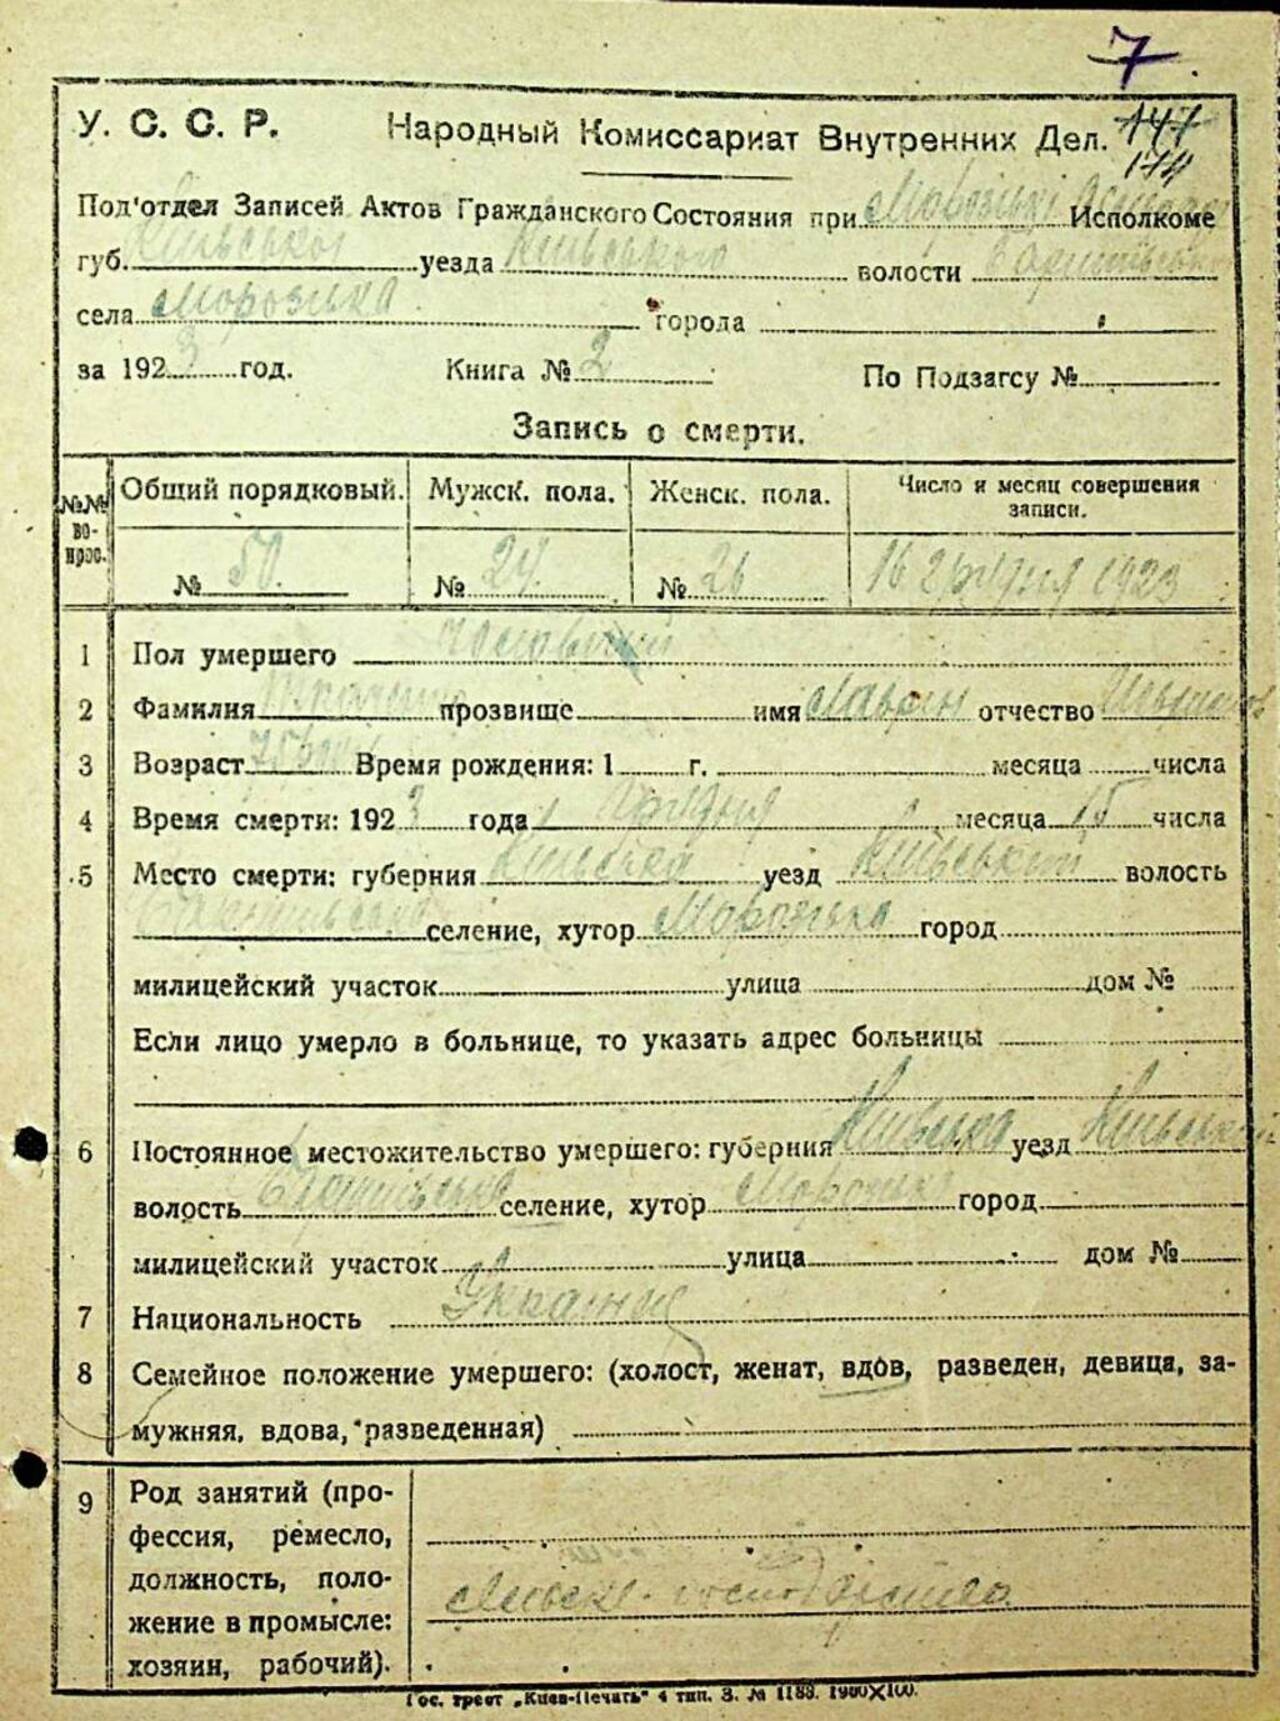 7
У. С. С. Р. Народный Комиссариат Внутренних Дел. 147
174
Под'отдел Записей Актов Гражданского Состояния при Исполкоме
губ. Київської уезда Київського волости
села Морозівка города
за 1923 год. Книга № 2 По Подзагсу №
Запись о смерти.
№№ вопрос. Общий порядковый. Мужск. пола. Женск. пола. Число и месяц совершения записи.
№ 50. № 24 № 26 16 грудня 1923
1 Пол умершего чоловічий
2 Фамилия прозвише имя Лаврін отчество
3 Возраст 75 Время рождения: 1 г. месяца числа
4 Время смерти: 1923 года грудня месяца 15 числа
5 Место смерти: губерния Київська уезд Київський волость
селение, хутор Морозівка город
милицейский участок улица дом №
Если лицо умерло в больнице, то указать адрес больницы
6 Постоянное местожительство умершего: губерния Київська уезд Київський
волость селение, хутор Морозівка город
милицейский участок улица дом №
7 Национальность Українец
8 Семейное положение умершего: (холост, женат, вдов, разведен, девица, за-
мужняя, вдова, разведенная)
9 Род занятий (про-
фессия, ремесло,
должность, поло-
жение в промысле:
хозяин, рабочий).
господарство
Гос. трест „Киев-Печать" 4 тип. З. № 1183. 1900×100.